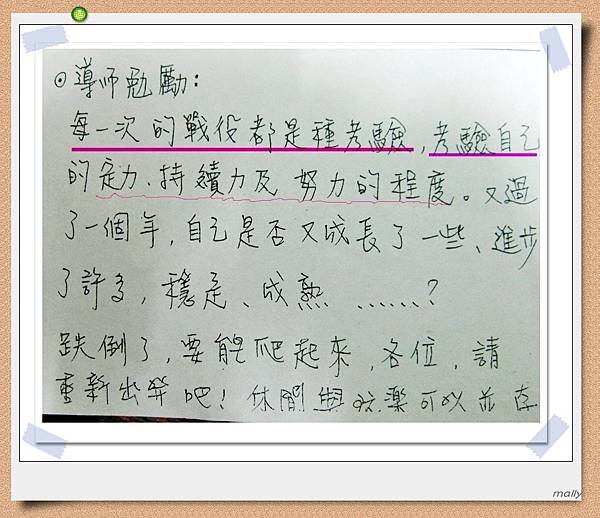 ⊙導師勉勵:
每一次的戰役都是種考驗,考驗自己
的定力、持續力及努力的程度。又過
了一個年,自己是否又成長了一些、進步
了許多,穩定、成熟......?
跌倒了,要能爬起來,各位,請
重新出發吧!休閒與玩樂可以並存
mally